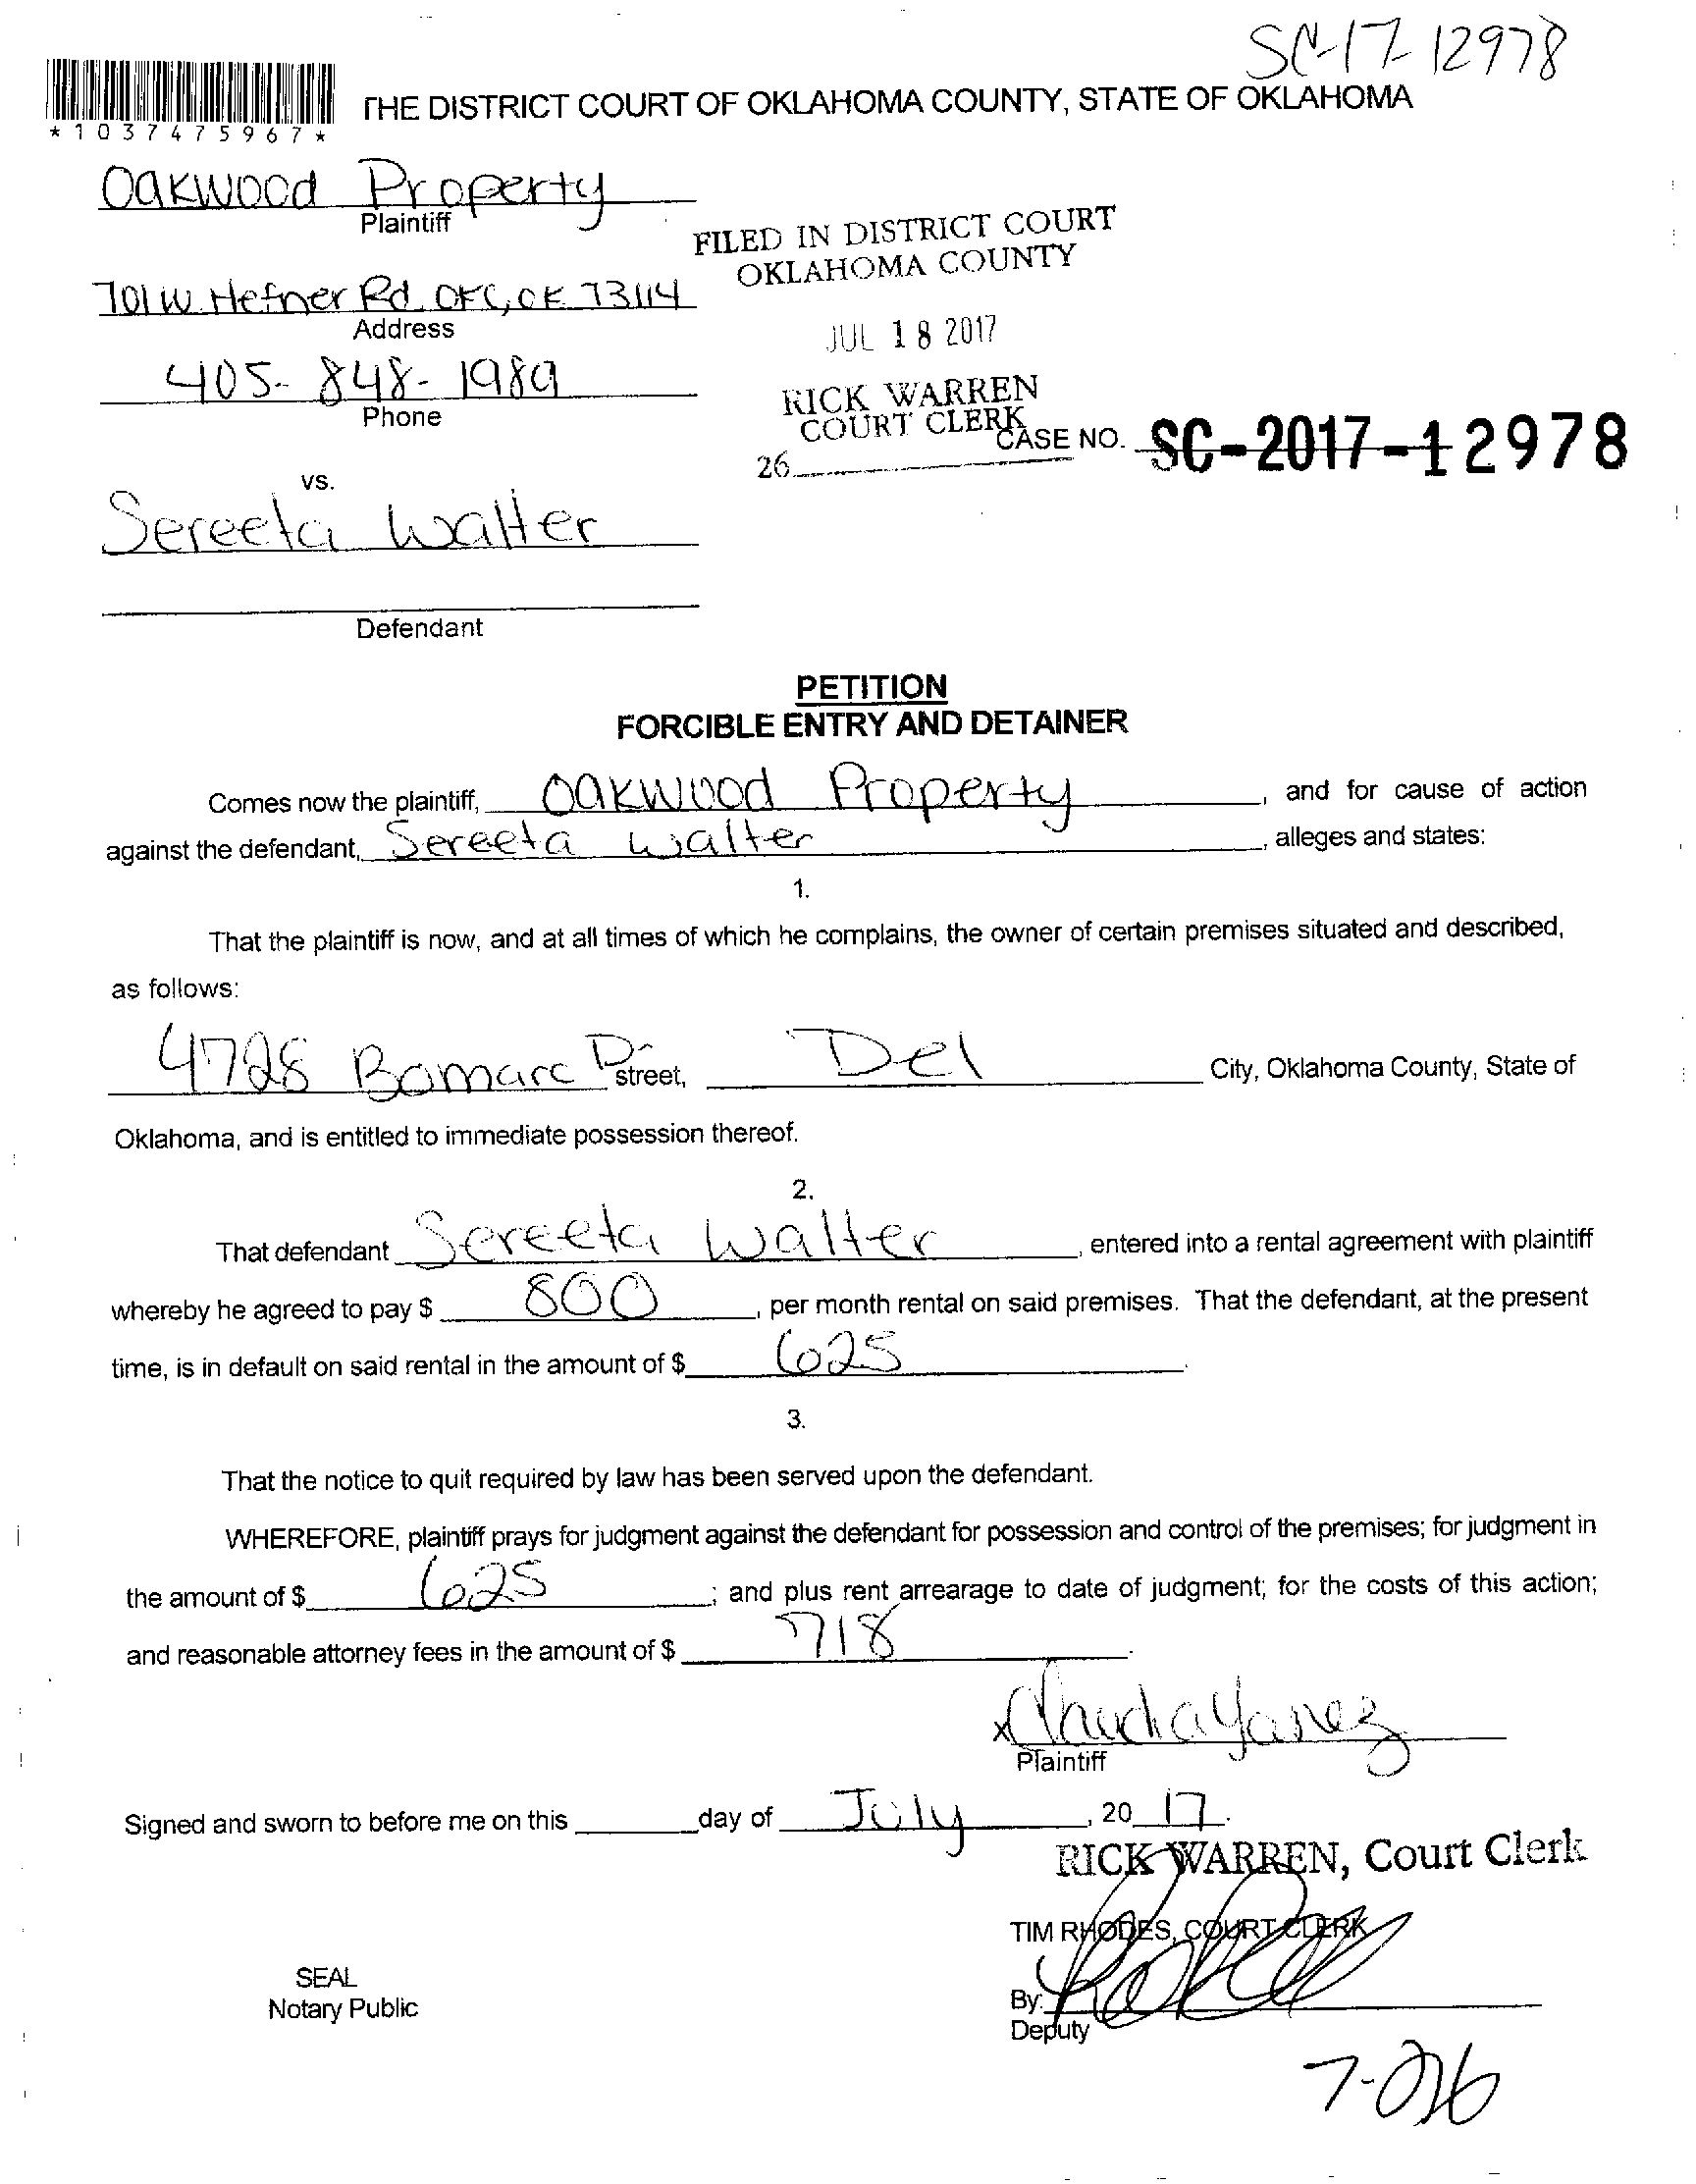 SC-17-12978
THE DISTRICT COURT OF OKLAHOMA COUNTY, STATE OF OKLAHOMA
*1037475967*
Oakwood Property
Plaintiff
FILED IN DISTRICT COURT
OKLAHOMA COUNTY
701 W. Hefner Rd OKC, OK 73114
Address
JUL 18 2017
405-848-1989
Phone
RICK WARREN
COURT CLERK
CASE NO. SC-2017-12978
26
vs.
Sereeta Walter
Defendant
PETITION
FORCIBLE ENTRY AND DETAINER
Comes now the plaintiff, Oakwood Property, and for cause of action
against the defendant, Sereeta Walter, alleges and states:
1.
That the plaintiff is now, and at all times of which he complains, the owner of certain premises situated and described,
as follows:
4728 Bomarc Dr street, Del City, Oklahoma County, State of
Oklahoma, and is entitled to immediate possession thereof.
2.
That defendant Sereeta Walter, entered into a rental agreement with plaintiff
whereby he agreed to pay $ 800, per month rental on said premises. That the defendant, at the present
time, is in default on said rental in the amount of $ 625.
3.
That the notice to quit required by law has been served upon the defendant.
WHEREFORE, plaintiff prays for judgment against the defendant for possession and control of the premises; for judgment in
the amount of $ 625; and plus rent arrearage to date of judgment; for the costs of this action;
and reasonable attorney fees in the amount of $ 718.
x Claudia Yanez
Plaintiff
Signed and sworn to before me on this ____ day of July, 2017.
RICK WARREN, Court Clerk
TIM RHODES, COURT CLERK
SEAL
Notary Public
By:
Deputy
7-26